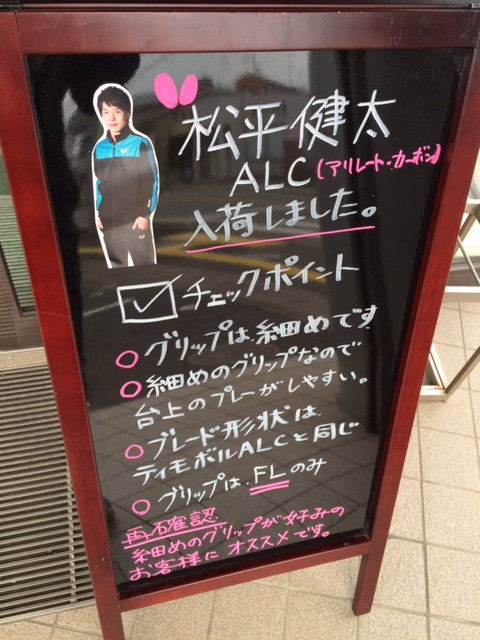 松平健太
ALC(アリレート・カーボン)
入荷しました。
チェックポイント
グリップは、細めです
細めのグリップなので
台上のプレーがしやすい。
ブレード形状は、
ティモボルALCと同じ
グリップは、FLのみ
再確認
細めのグリップが好みの
お客様にオススメです。